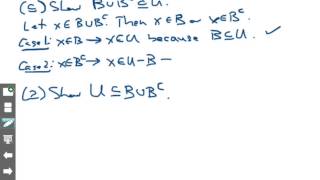 (⊆) Show B∪Bᶜ ⊆ U.
Let x∈B∪Bᶜ. Then x∈B or x∈Bᶜ.
Case 1: x∈B → x∈U because B⊆U. ✓
Case 2: x∈Bᶜ → x∈U-B –
(2) Show U⊆B∪Bᶜ.